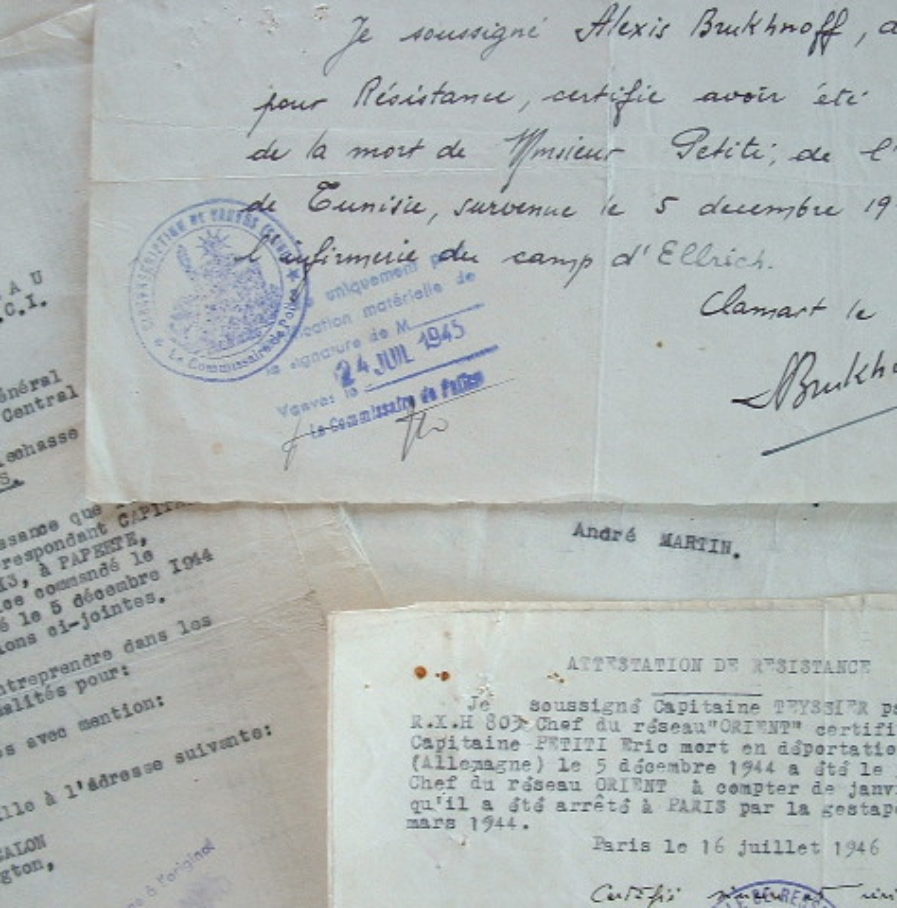 Je soussigné Alexis Brukhnoff, a
pour Résistance, certifie avoir été
de la mort de Monsieur Petiti, de l'
de Tunisie, survenue le 5 decembre 19
l'infirmerie du camp d'Ellrich.
Clamart le
Brukh
CIRCONSCRIPTION DE VANVES
Le Commissaire de Police
uniquement
matérielle de
la signature de M
24 JUIL 1945
Vanves le
Le Commissaire de Police
A U
.C.I.
énéral
Central
echasse
S.
ssance que
respondant CAPITA
13, à PAPEETE,
ce commandé le
é le 5 décembre 1944
ions ci-jointes.
ntreprendre dans les
alités pour:
es avec mention:
lle à l'adresse suivante:
ALON
gton,
à l'original
André MARTIN.
ATTESTATION DE RESISTANCE
Je soussigné Capitaine TEYSSIER p
R.X.H 803 Chef du réseau"ORIENT" certifi
Capitaine PETITI Eric mort en déportatio
(Allemagne) le 5 décembre 1944 a été le
Chef du réseau ORIENT à compter de janv
qu'il a été arrêté à PARIS par la gestap
mars 1944.
Paris le 16 juillet 1946
Certifié sincère et